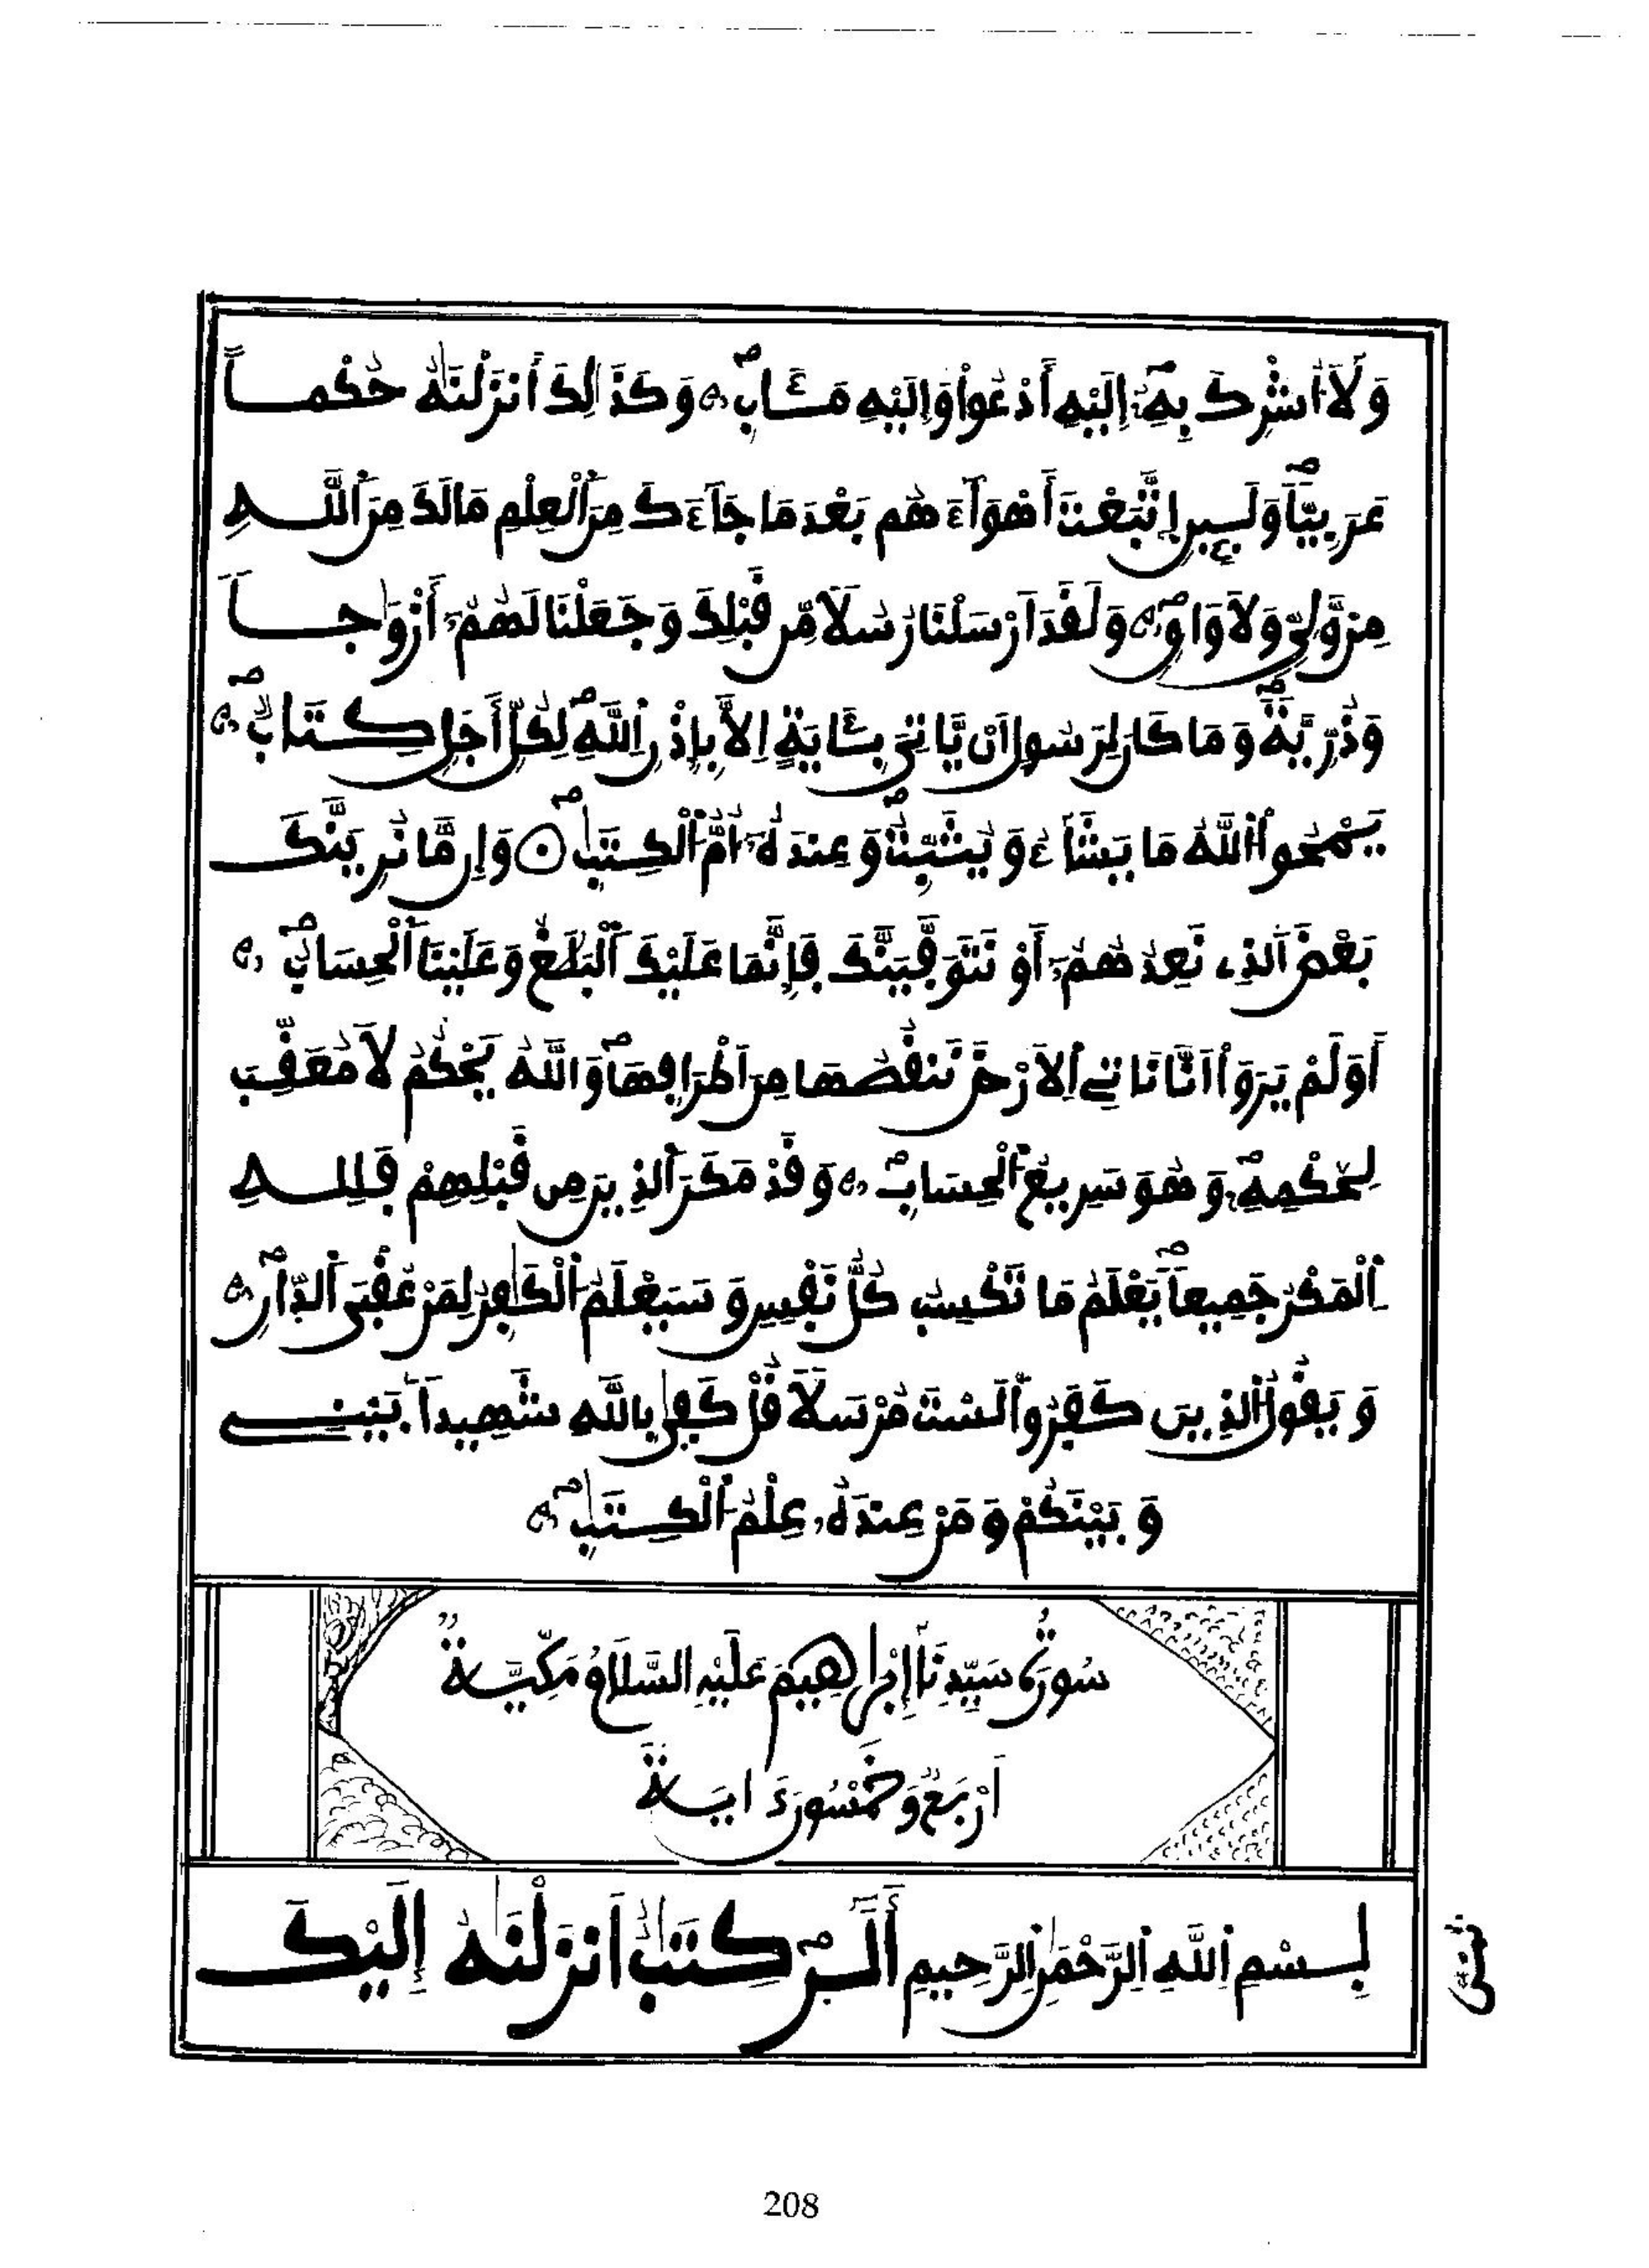 وَلَآ أُشْرِكَ بِهِۦٓ إِلَيْهِ أَدْعُواْ وَإِلَيْهِ مَـَٔابِ وَكَذَٰلِكَ أَنزَلْنَٰهُ حُكْماً
عَرَبِيّاً وَلَيِنِ اِتَّبَعْتَ أَهْوَآءَهُم بَعْدَ مَا جَآءَكَ مِنَ اَلْعِلْمِ مَالَكَ مِنَ اَللَّهِ
مِنْ وَّلِيٍّ وَلَا وَاقٍ وَلَقَدَ اَرْسَلْنَا رُسُلاً مِّن قَبْلِكَ وَجَعَلْنَا لَهُمُۥٓ أَزْوَٰجاً
وَذُرِّيَّةً وَمَا كَانَ لِرَسُولٍ اَنْ يَّاتِيَ بِـَٔايَةٍ اِلَّا بِإِذْنِ اِللَّهِ لِكُلِّ أَجَلٍ كِتَابٌ
يَمْحُواْ اُللَّهُ مَا يَشَآءُ وَيُثَبِّتُ وَعِندَهُۥٓ أُمُّ اُلْكِتَٰبِ وَإِن مَّا نُرِيَنَّكَ
بَعْضَ اَلذِے نَعِدُهُمُۥٓ أَوْ نَتَوَفَّيَنَّكَ فَإِنَّمَا عَلَيْكَ اَلْبَلَٰغُ وَعَلَيْنَا اَلْحِسَابُ
أَوَلَمْ يَرَوَاْ اَنَّا نَاتِے اِلَارْضَ نَنقُصُهَا مِنَ اَطْرَافِهَا وَاللَّهُ يَحْكُمُ لَا مُعَقِّبَ
لِحُكْمِهِۦ وَهُوَ سَرِيعُ اُلْحِسَابِ وَقَدْ مَكَرَ اَلذِينَ مِن قَبْلِهِمْ فَلِلهِ
اِلْمَكْرُ جَمِيعاً يَعْلَمُ مَا تَكْسِبُ كُلُّ نَفْسٍ وَسَيَعْلَمُ اُلْكَٰفِرُ لِمَنْ عُقْبَى اَلدّارِ
وَيَقُولُ اُلذِينَ كَفَرُواْ لَسْتَ مُرْسَلاً قُلْ كَفَىٰ بِاللَّهِ شَهِيداَۢ بَيْنِے
وَبَيْنَكُمْ وَمَنْ عِندَهُۥ عِلْمُ اُلْكِتَٰبِ
سُورَةُ سَيِّدِنَا إِبْرَاهِيمَ عَلَيْهِ السَّلَامُ مَكِّيَّةٌ
اَرْبَعٌ وَخَمْسُونَ ءَايَةً
بِسْمِ اِللَّهِ اِلرَّحْمَٰنِ اِلرَّحِيمِ أَلَٓرَ كِتَٰبٌ اَنزَلْنَٰهُ إِلَيْكَ
208